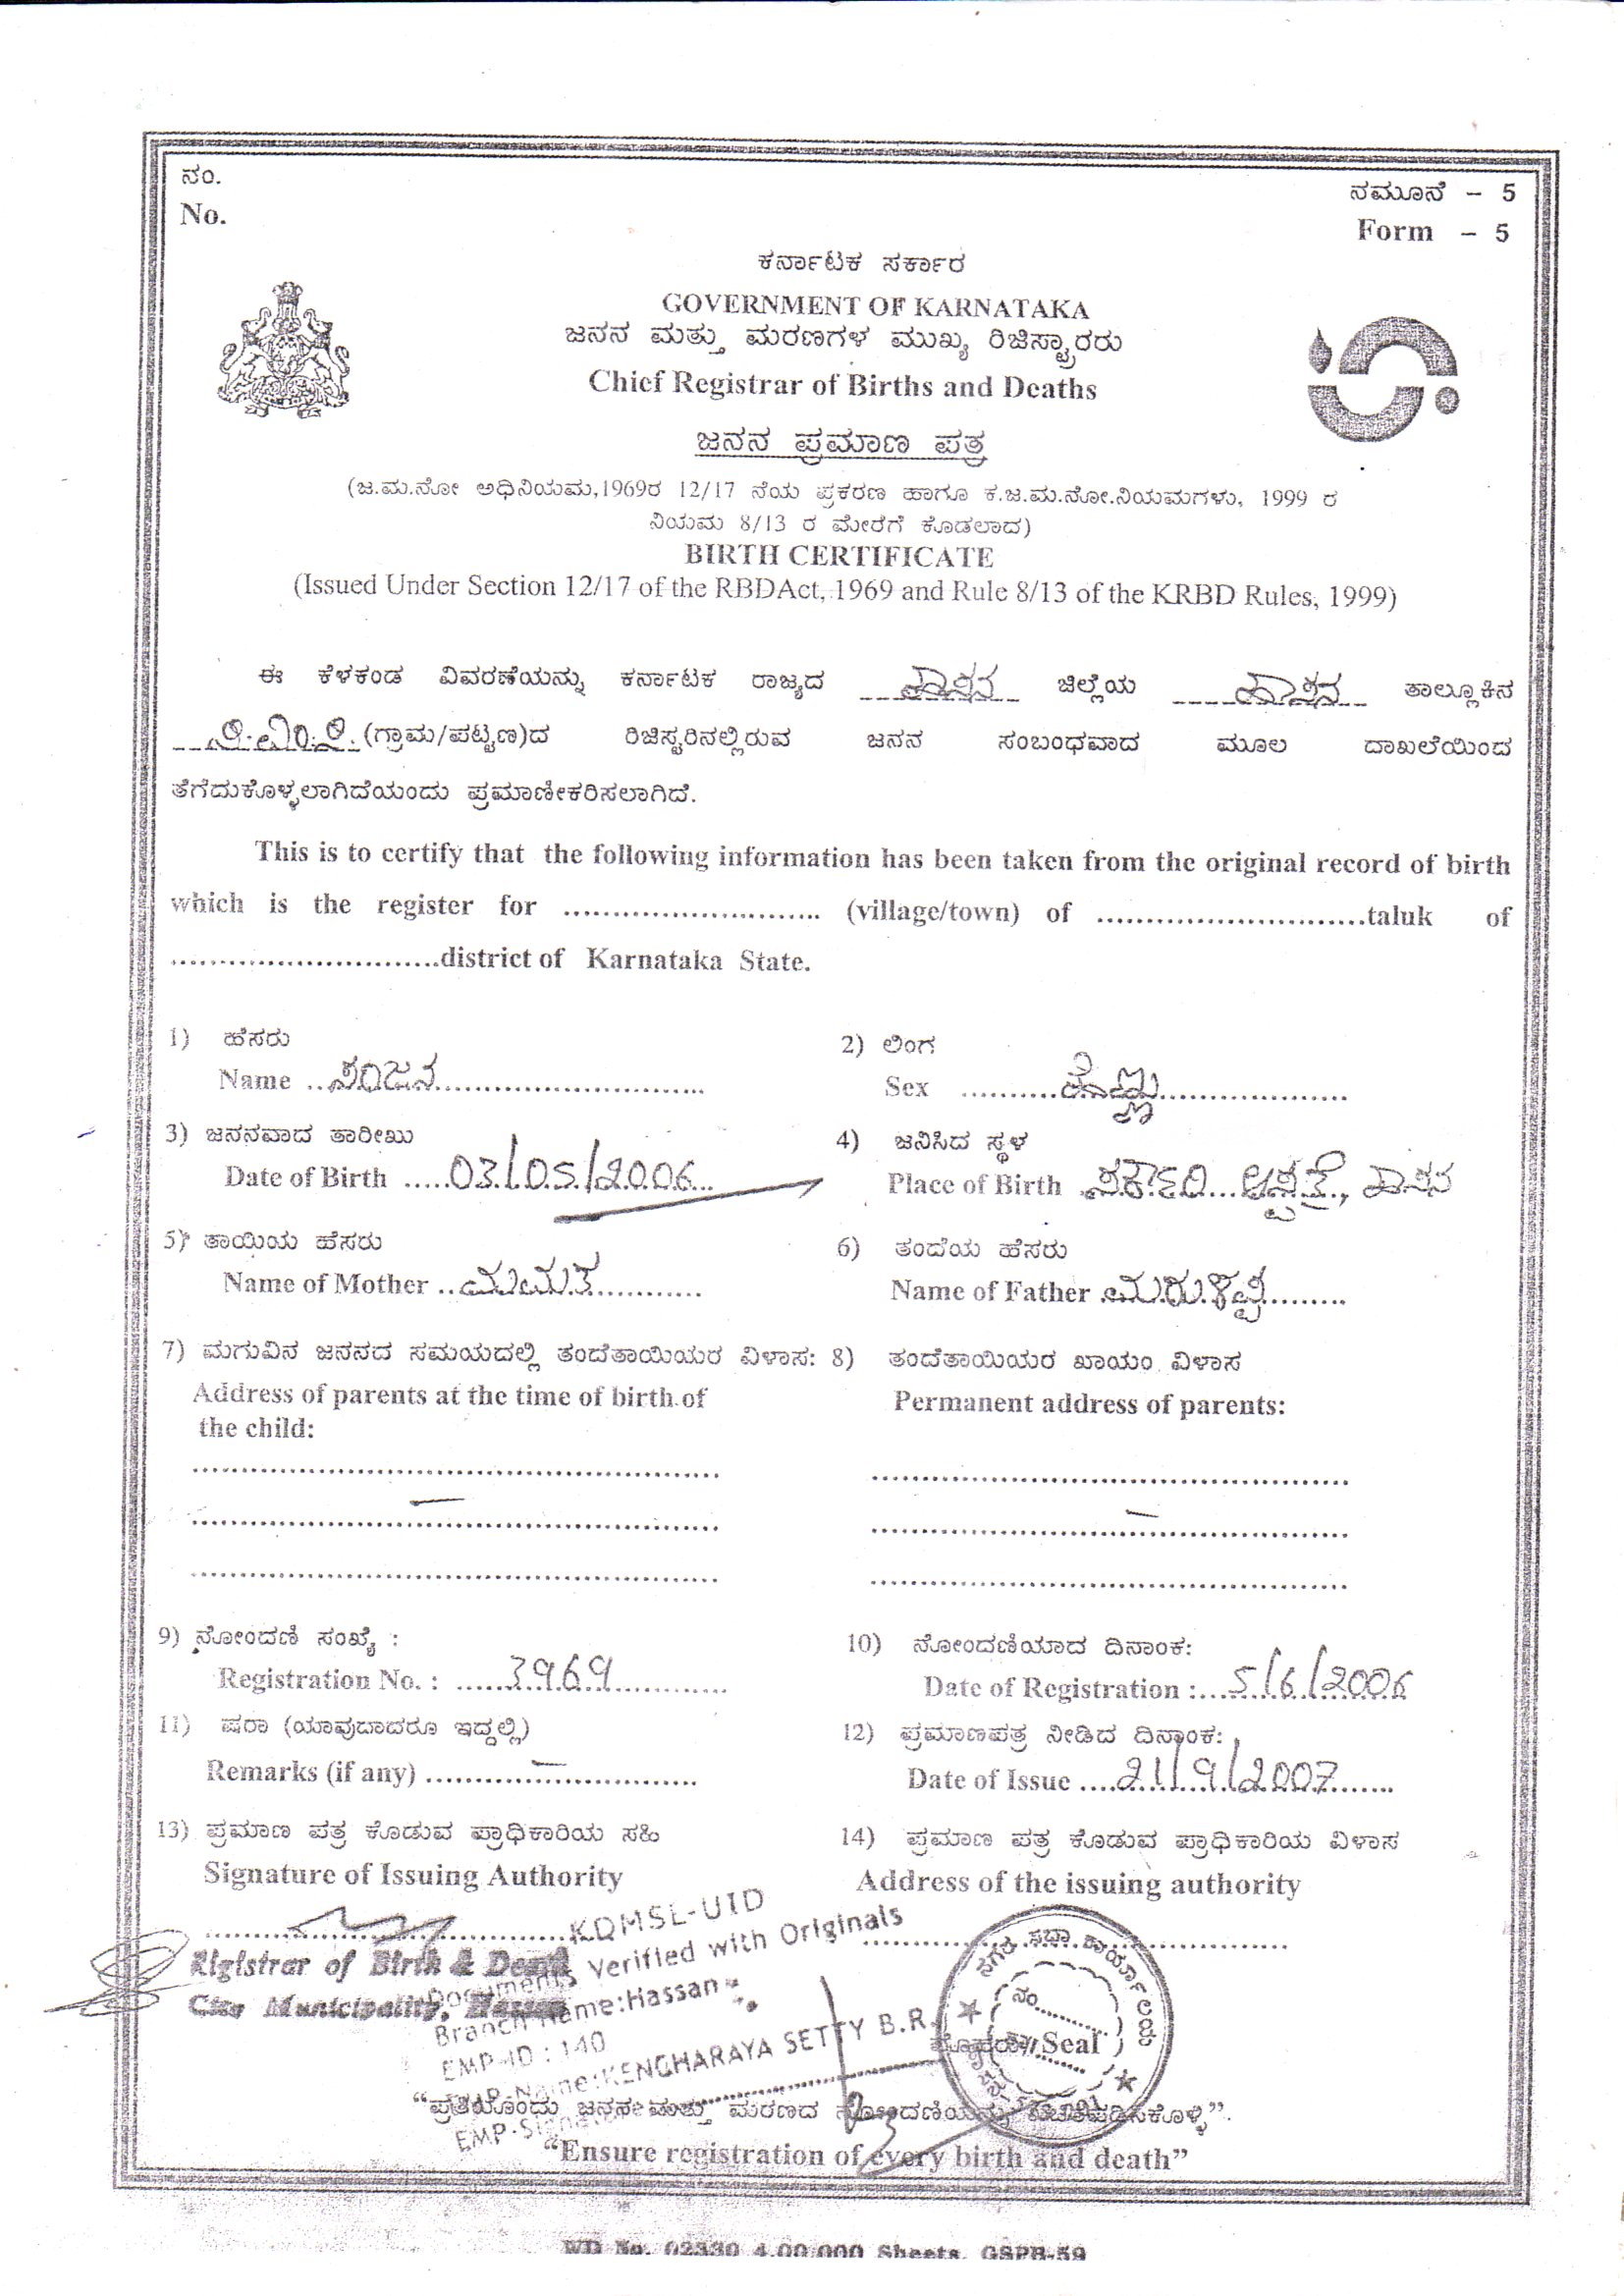 ನಂ.
No.
ನಮೂನೆ – 5
Form – 5
ಕರ್ನಾಟಕ ಸರ್ಕಾರ
GOVERNMENT OF KARNATAKA
ಜನನ ಮತ್ತು ಮರಣಗಳ ಮುಖ್ಯ ರಿಜಿಸ್ಟ್ರಾರರು
Chief Registrar of Births and Deaths
ಜನನ ಪ್ರಮಾಣ ಪತ್ರ
(ಜ.ಮ.ನೋ ಅಧಿನಿಯಮ,1969ರ 12/17 ನೆಯ ಪ್ರಕರಣ ಹಾಗೂ ಕ.ಜ.ಮ.ನೋ.ನಿಯಮಗಳು, 1999 ರ
ನಿಯಮ 8/13 ರ ಮೇರೆಗೆ ಕೊಡಲಾದ)
BIRTH CERTIFICATE
(Issued Under Section 12/17 of the RBDAct, 1969 and Rule 8/13 of the KRBD Rules, 1999)
ಈ ಕೆಳಕಂಡ ವಿವರಣೆಯನ್ನು ಕರ್ನಾಟಕ ರಾಜ್ಯದ ಹಾಸನ ಜಿಲ್ಲೆಯ ಹಾಸನ ತಾಲ್ಲೂಕಿನ
(ಗ್ರಾಮ/ಪಟ್ಟಣ)ದ ರಿಜಿಸ್ಟರಿನಲ್ಲಿರುವ ಜನನ ಸಂಬಂಧವಾದ ಮೂಲ ದಾಖಲೆಯಿಂದ
ತೆಗೆದುಕೊಳ್ಳಲಾಗಿದೆಯಂದು ಪ್ರಮಾಣೀಕರಿಸಲಾಗಿದೆ.
This is to certify that the following information has been taken from the original record of birth
which is the register for .......................... (village/town) of ...........................taluk of
...........................district of Karnataka State.
1) ಹೆಸರು
Name ..ಸಂಜನ...........................
2) ಲಿಂಗ
Sex ..........ಹೆಣ್ಣು...................
3) ಜನನವಾದ ತಾರೀಖು
Date of Birth .....03/05/2006...
4) ಜನಿಸಿದ ಸ್ಥಳ
Place of Birth .ಸರ್ಕಾರಿ... ಆಸ್ಪತ್ರೆ, ಹಾಸನ
5) ತಾಯಿಯ ಹೆಸರು
Name of Mother ..ಮಮತ...........
6) ತಂದೆಯ ಹೆಸರು
Name of Father .ಮರುಳಪ್ಪ........
7) ಮಗುವಿನ ಜನನದ ಸಮಯದಲ್ಲಿ ತಂದೆತಾಯಿಯರ ವಿಳಾಸ:
Address of parents at the time of birth of
the child:
—
8) ತಂದೆತಾಯಿಯರ ಖಾಯಂ ವಿಳಾಸ
Permanent address of parents:
—
9) ನೋಂದಣಿ ಸಂಖ್ಯೆ :
Registration No. : ......3969............
10) ನೋಂದಣಿಯಾದ ದಿನಾಂಕ:
Date of Registration :....5/6/2006
11) ಷರಾ (ಯಾವುದಾದರೂ ಇದ್ದಲ್ಲಿ)
Remarks (if any) ...........—...............
12) ಪ್ರಮಾಣಪತ್ರ ನೀಡಿದ ದಿನಾಂಕ:
Date of Issue ....21/9/2007......
13) ಪ್ರಮಾಣ ಪತ್ರ ಕೊಡುವ ಪ್ರಾಧಿಕಾರಿಯ ಸಹಿ
Signature of Issuing Authority
14) ಪ್ರಮಾಣ ಪತ್ರ ಕೊಡುವ ಪ್ರಾಧಿಕಾರಿಯ ವಿಳಾಸ
Address of the issuing authority
Rigistrar of Birth & Death
City Municipality, Hassan
KDMSL-UID
Documents Verified with Originals
Branch Name:Hassan
EMP-ID : 140
EMP-Name:KENCHARAYA SETTY B.R.
EMP-Sign
ನಗರ ಸಭಾ ಕಾರ್ಯಾಲಯ
ನಂ.......
ಮೊಹರು/Seal
“ಪ್ರತಿಯೊಂದು ಜನನ ಮತ್ತು ಮರಣದ ನೋಂದಣಿಯನ್ನು ಖಚಿತಪಡಿಸಿಕೊಳ್ಳಿ”.
“Ensure registration of every birth and death”
WD No. 02330 4,00,000 Sheets. GSPB-59